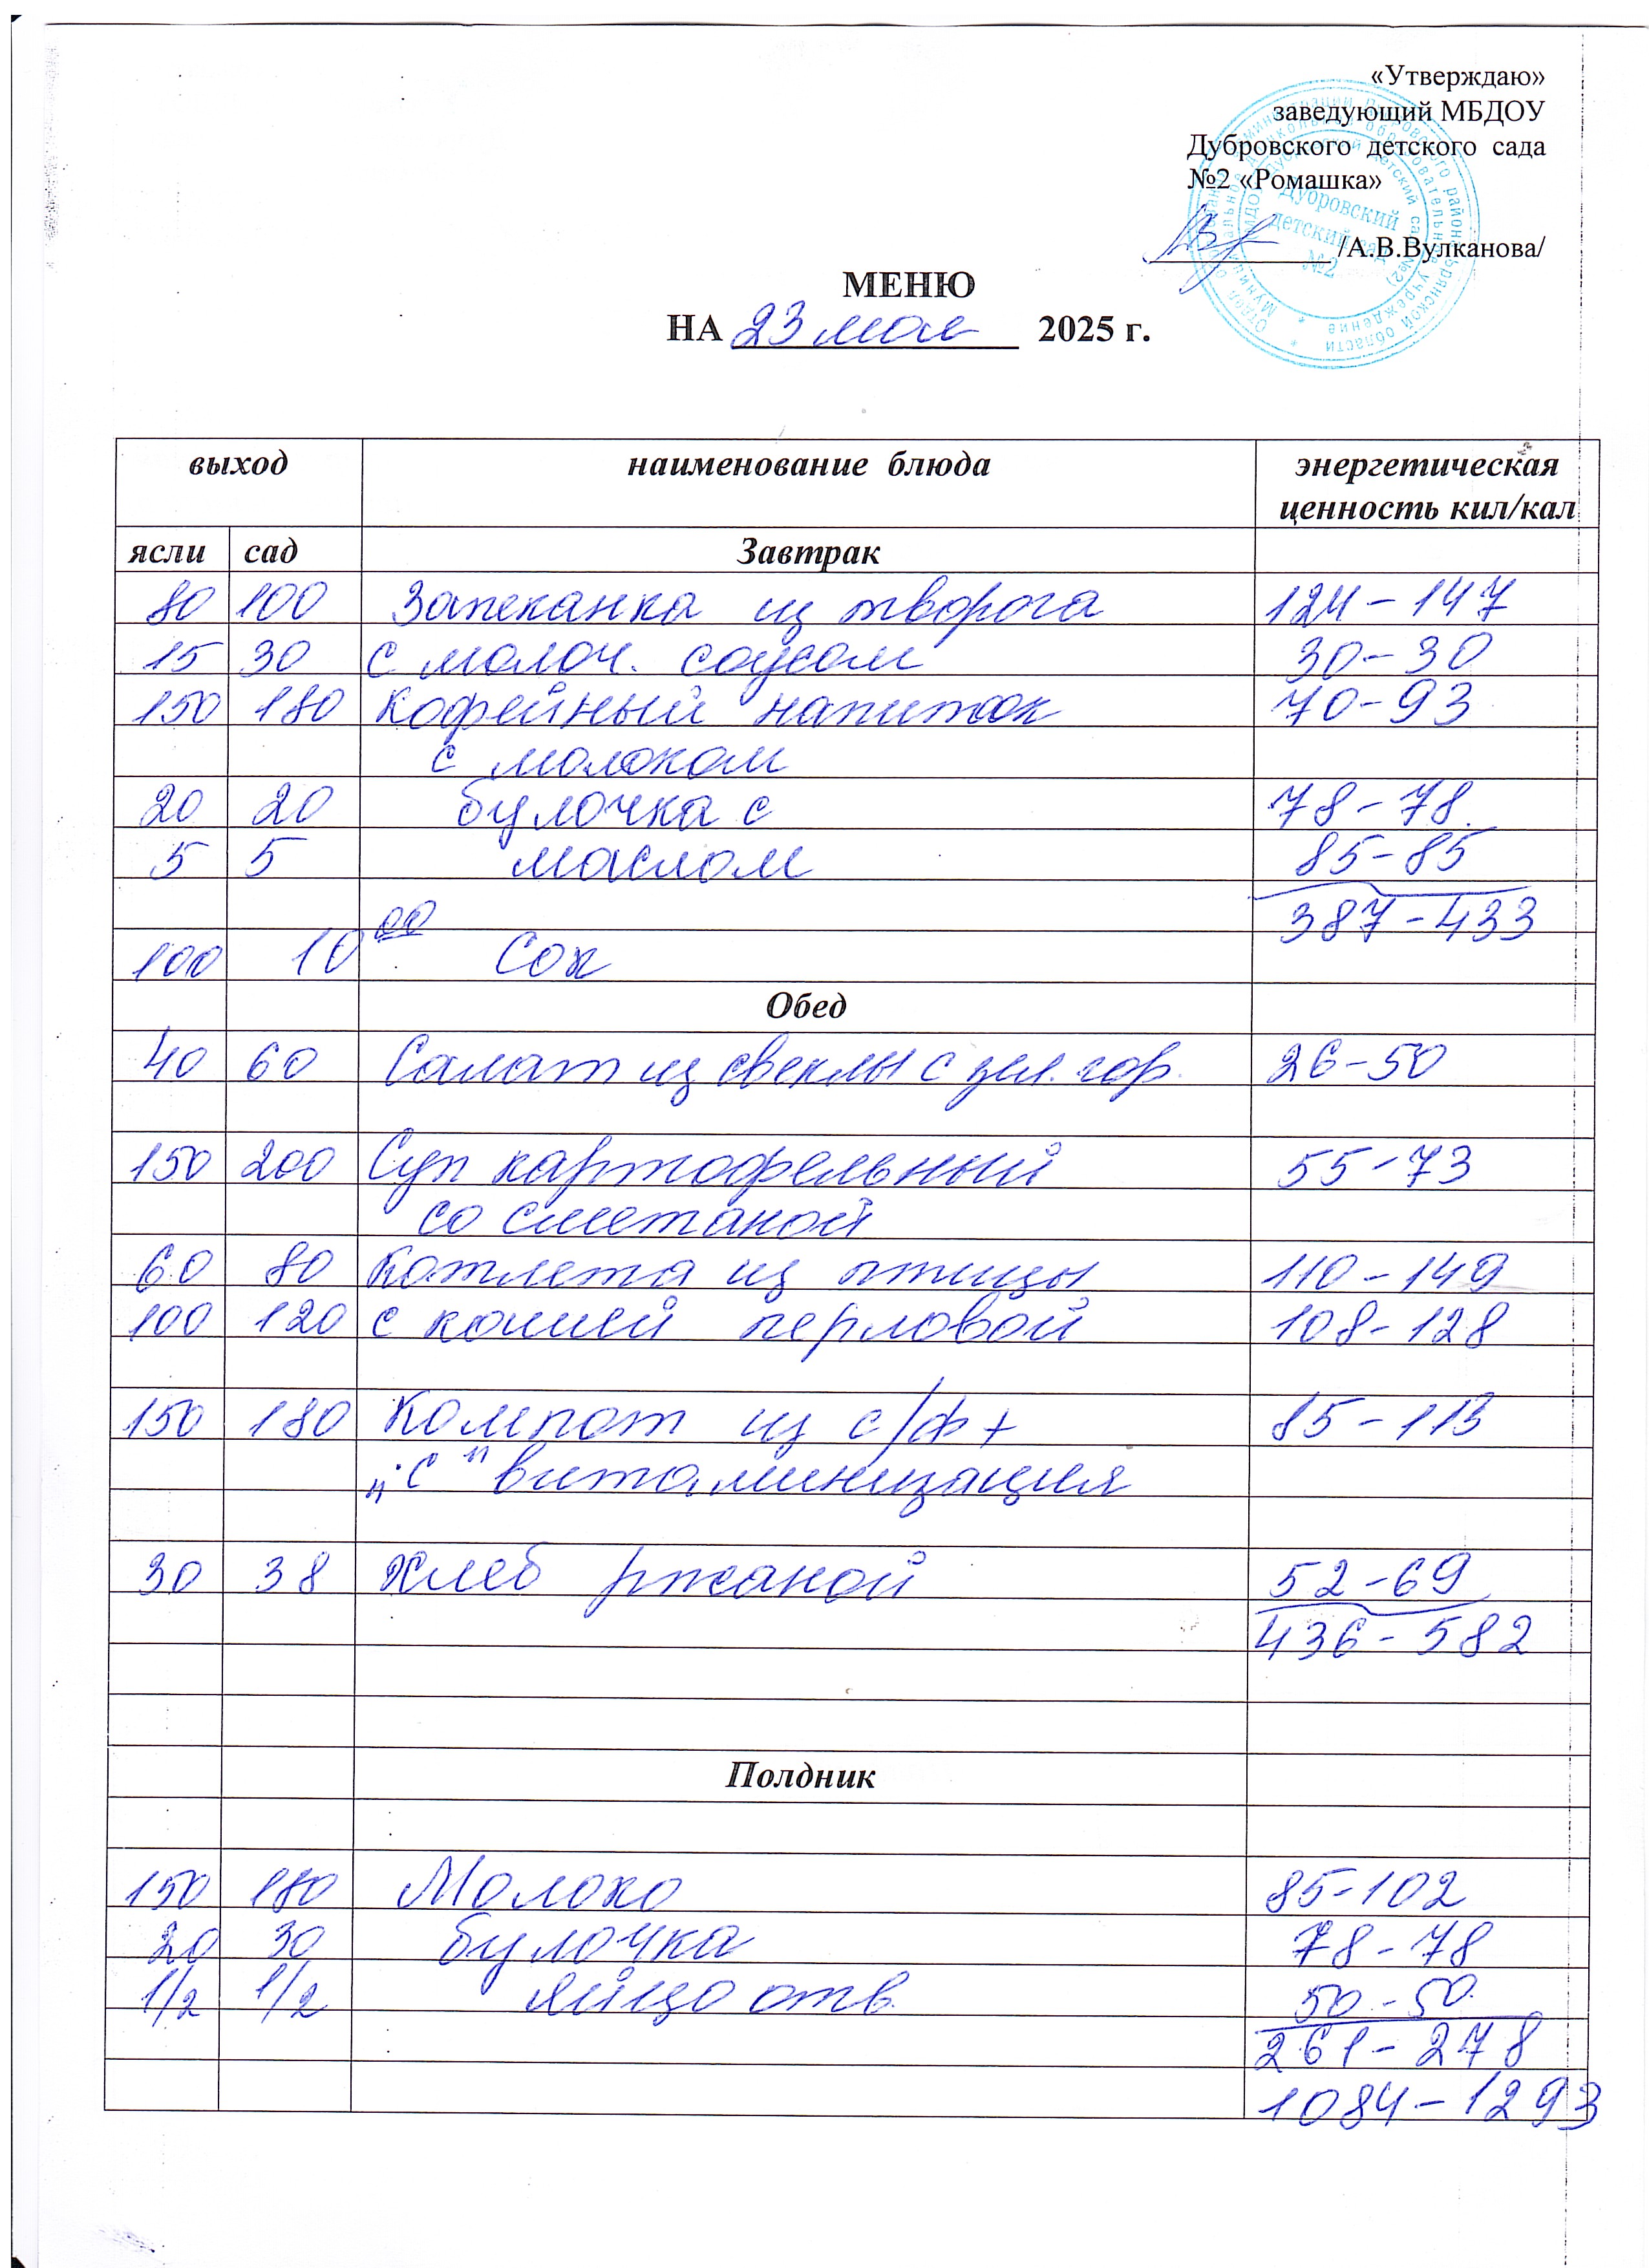 «Утверждаю»
заведующий МБДОУ
Дубровского детского сада
№2 «Ромашка»
/А.В.Вулканова/
Дубровский
детский сад
№2
МЕНЮ
НА 23 мая 2025 г.
выход наименование блюда энергетическая
ценность кил/кал
ясли сад Завтрак
80 100 Запеканка из творога 124-147
15 30 с молоч. соусом 30-30
150 180 Кофейный напиток 70-93
с молоком
20 20 булочка с 78-78
5 5 маслом 85-85
387-433
100 10 00 Сок
Обед
40 60 Салат из свеклы с зел. гор. 26-50
150 200 Суп картофельный 55-73
со сметаной
60 80 Котлета из птицы 110-149
100 120 с кашей перловой 108-128
150 180 Компот из с/ф +
85-113
„С" витаминизация
30 38 Хлеб ржаной 52-69
436-582
Полдник
150 180 Молоко 85-102
20 30 булочка 78-78
1/2 1/2 яйцо отв. 50-50
261-278
1084-1293